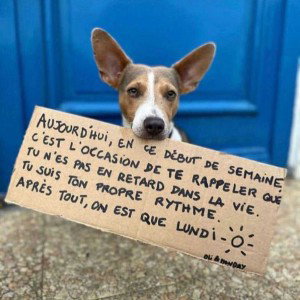 AUJOURD'HUI, EN CE DÉBUT DE SEMAINE
C'EST L'OCCASION DE TE RAPPELER QUE
TU N'ES PAS EN RETARD DANS LA VIE.
TU SUIS TON PROPRE RYTHME.
APRÈS TOUT, ON EST QUE LUNDI
OLI & MONDAY